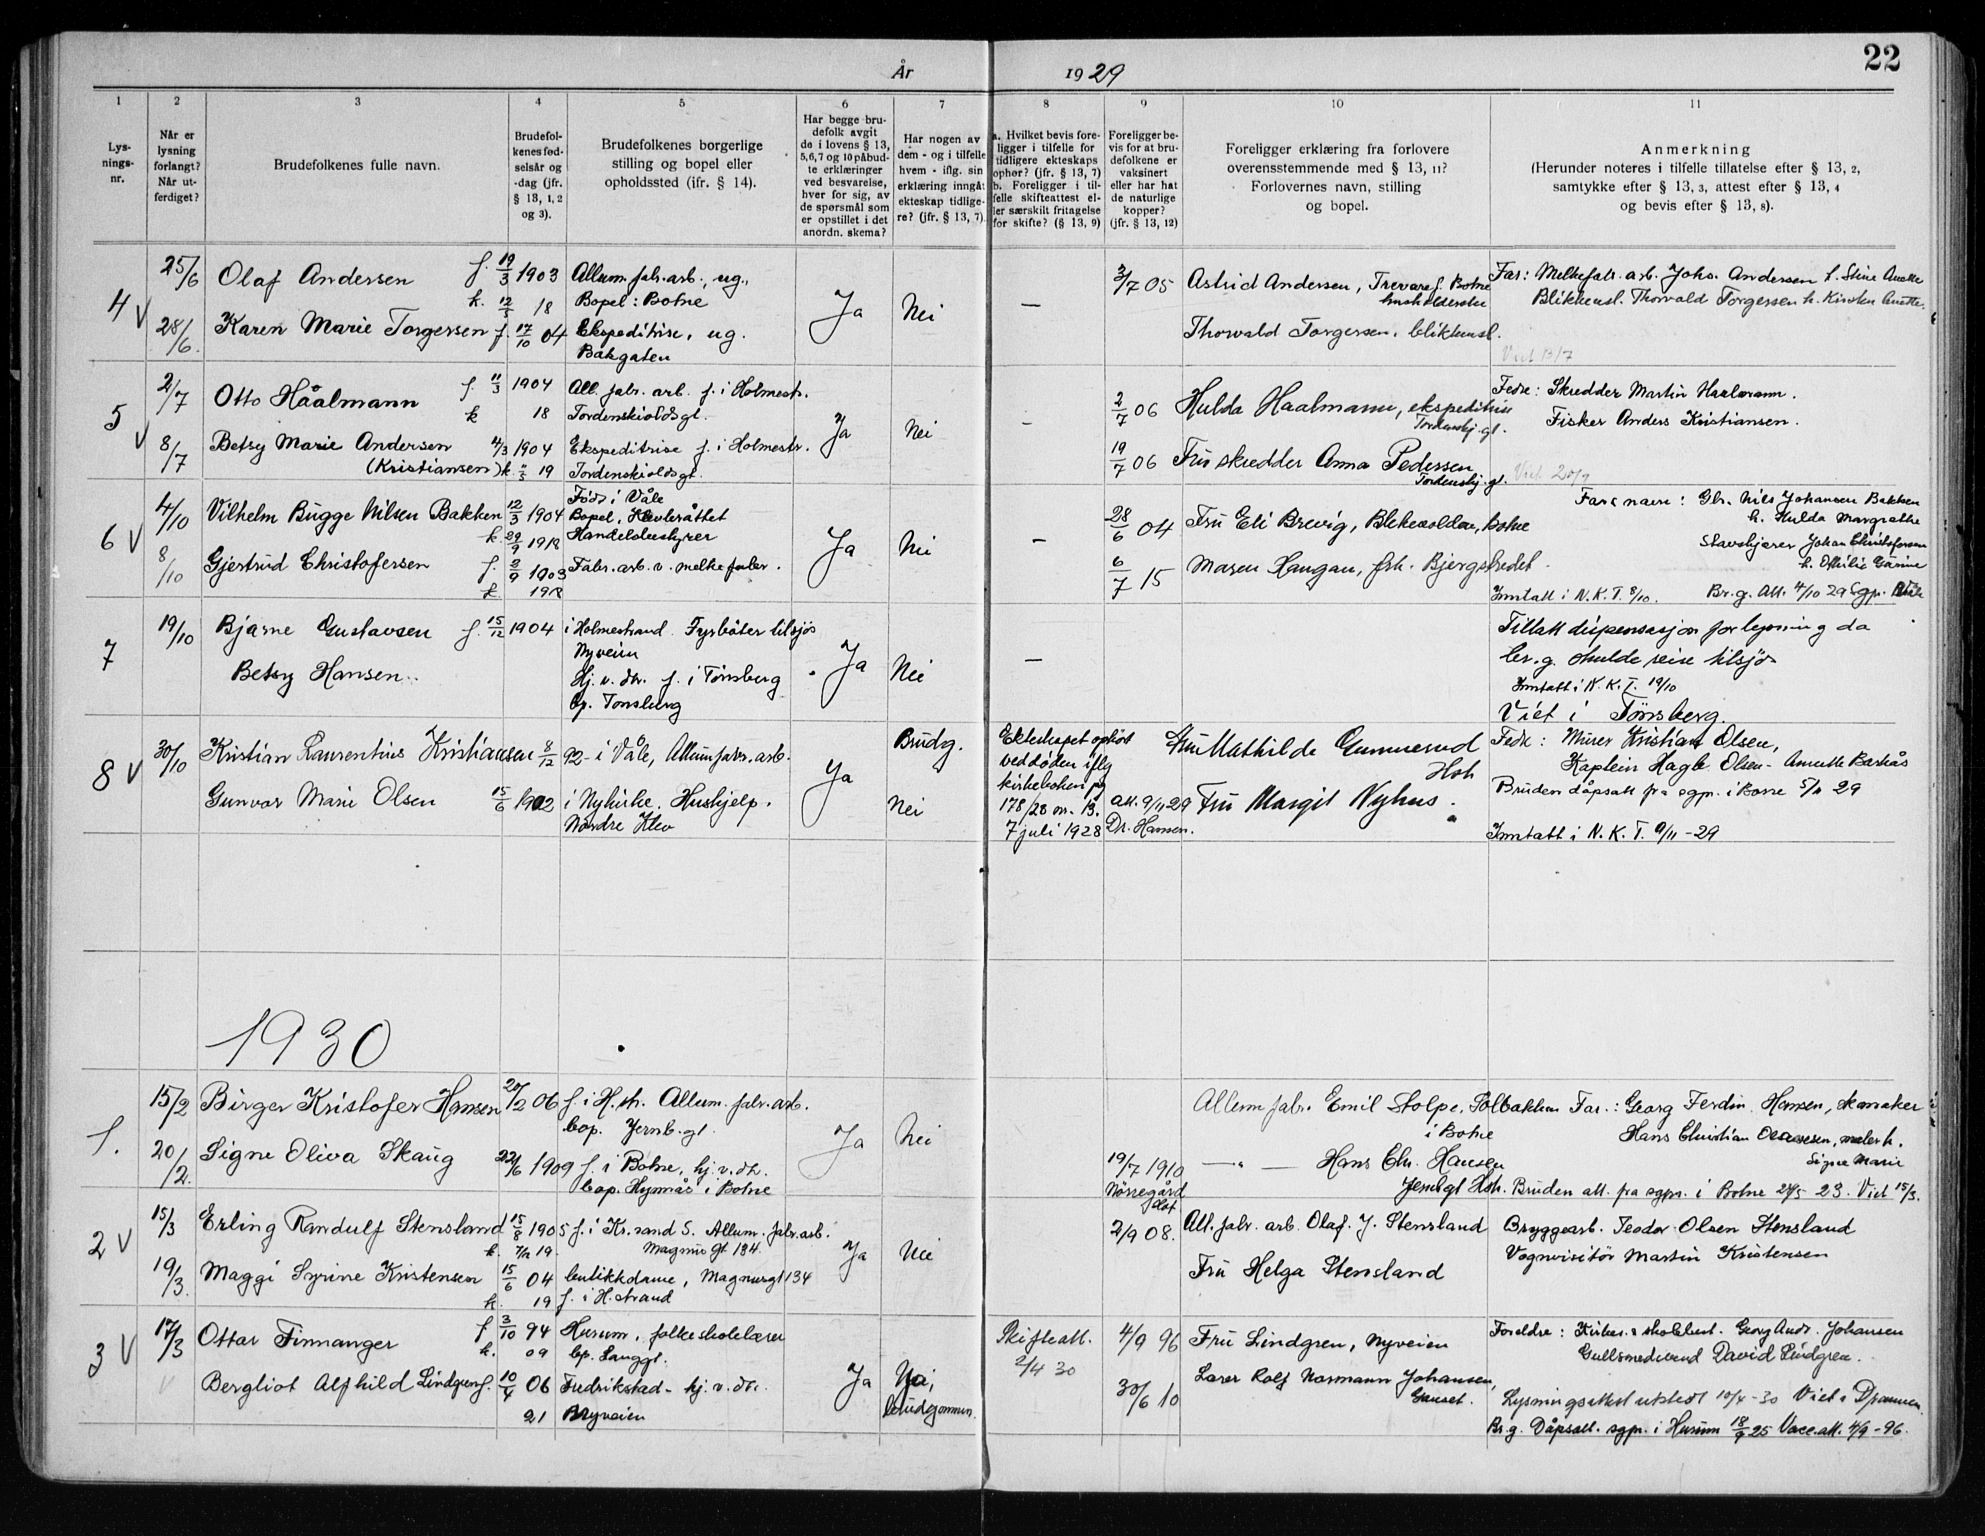 År 1929
22
1 2 3 4 5 6 7 8 9 10 11
Lys-
nings-
nr.
Når er
lysning
forlangt?
Når ut-
ferdiget?
Brudefolkenes fulle navn.
Brudefol-
kenes fød-
selsår og
-dag (jfr.
§ 13, 1, 2
og 3).
Brudefolkenes borgerlige
stilling og bopel eller
opholdssted (ifr. § 14).
Har begge bru-
defolk avgit
de i lovens § 13,
5,6,7 og 10 påbud-
te erklæringer
ved besvarelse,
hver for sig, av
de spørsmål som
er opstillet i det
anordn. skema?
Har nogen av
dem - og i tilfelle
hvem - iflg. sin
erklæring inngåt
ekteskap tidlige-
re? (jfr. § 13, 7).
a. Hvilket bevis fore-
ligger i tilfelle for
tidligere ekteskaps
ophør? (jfr. § 13, 7)
b. Foreligger i til-
felle skifteattest el-
ler særskilt fritagelse
for skifte? (§ 13, 9)
Foreligger be-
vis for at bru-
defolkene er
vaksinert
eller har hat
de naturlige
kopper?
(jfr. § 13, 12)
Foreligger erklæring fra forlovere
overensstemmende med § 13, 11?
Forlovernes navn, stilling
og bopel.
Anmerkning
(Herunder noteres i tilfelle tillatelse efter § 13, 2,
samtykke efter § 13, 3, attest efter § 13, 4
og bevis efter § 13, 8).
4 V 25/6 Olaf Andersen f. 19/3 1903 Allum. fabr. arb., ug.,
k. 18 Bopel: Botne
28/6. Karen Marie Torgersen f. 17/10 04 Ekspeditrise, ug.
Bakgaten
Ja Nei — 3/7 05 Astrid Andersen, Botne
Thorvald Torgersen, blikkensl.
Far: Melkefabr. arb. Johs. Andersen h. Stine Anette
Blikkensl. Thorvald Torgersen h. Kirsten Anette.
Viet 13/7
5 V 2/7 Otto Håålmann f. 11/3 1904 All. fabr. arb. f. i Holmestr.
k 18 Tordenskiolds gt.
8/7 Betsy Marie Andersen 4/3 1904 Ekspeditrise f. i Holmestr.
(Kristiansen) k. 19 Tordenskiolds gt.
Ja Nei - 2/7 06 Hulda Haalmann, ekspeditrise
Tordenskj. gt.
19/7 06 Fru skredder Anna Pedersen
Tordenskj. gt.
Fedre: Skredder Martin Haalmann.
Fisker Anders Kristiansen.
Viet 20/7
6 V 4/10 Vilhelm Bugge Nilsen Bakken 12/3 1904 Født i Våle
Bopel,
k. 29/9 1918 Handelsbestyrer
8/10 Gjertrud Christofersen f. 2/9 1903 Fabr. arb. v. melkefabr.
k. 1918
Ja Nei - 28/6 04 Fru Eli Brevig, Botne
6/7 15 Maren Haugan, frk. Bjergskredet.
Fars navn: Gbr. Nils Johansen Bakken
h. Hulda Margrethe
Johan Christofersen
h. Othilie Gurine
Inntatt i N. K. T. 8/10. Br.g. Att. 4/10 29 Sgp. Våle
7 19/10 Bjarne Gustavsen f. 15/12 1904 i Holmestrand. Fyrbøter tilsjøs
Nyveien
Betsy Hansen. Hj. v. dtr. f. i Tønsberg
bp. Tønsberg
Ja Nei — Tillatt dispensasjon for lysning da
br.g. skulde reise tilsjøs
Inntatt i N. K. T. 19/10
Viet i Tønsberg.
8 V 30/10 Kristian Laurentius Kristiansen 8/12 92 - i Våle, Allum fabr. arb.
Gunvor Marie Olsen 15/6 1902 i Nykirke. Hushjelp.
Nordre Klev
Ja Brudg. Nei
Ekteskapet ophørt
ved døden iflg
kirkeboken pg
178/28 nr. 13.
7 juli 1928
Att. 9/11 29
Dr. Hansen.
Fru Mathilde Gunnerud
Hsh
Fru Margit Nyhus.
Fedre: Murer Kristian Olsen,
Kaptein Hagb Olsen - Annette Barkås
Bruden dåpsatt fra sgpr. i Borre 5/11 29
Inntatt i N. K. T. 9/11 - 29
1930
1. 15/2 Birger Kristofer Hansen 20/2 06 f. i H.str. Allum. fabr. arb.
bop. Jernb. gt.
20/2. Signe Oliva Skaug 22/6 1909 f. i Botne, hj. v. dtr.
bop. Hynnås i Botne
Ja Nei 19/7 1910
Nörregård
Allum fabr. Emil Stolpe, Solbakken
i Botne
—"— Hans Chr. Hansen
Jernbgt Hsh.
Far.: Georg Ferdin. Hansen, skomaker
Hans Christian Olavesen, maler h.
Signe Marie
Bruden att. fra sgpr. i Botne 23. Viet 15/3.
2 V 15/3 Erling Randulf Stensland 15/8 1905 f. i Kr. sand S. Allum. fabr. arb.
k. 19. Magnus gt 134.
19/3. Maggi Syrine Kristensen 15/6 04 butikkdame, Magnusgt 134
k. 19 f. i H.strand
Ja Nei 2/9 08. All. fabr. arb. Olaf. J. Stensland
Fru Helga Stensland
Bryggearb. Teodor Olsen Stensland
Vognvisitør Martin Kristensen
3 V 17/3 Ottar Finnanger f 3/10 94 Hurum, folkeskolelærer
k. 09 bp. Langgt.
Bergliot Alfhild Lindgren f. 10/4 06 Fredrikstad - hj. v. dtr.
21 Nyveien
Ja Ja,
brudgommen.
Skifteatt.
2/4 30
4/9 96 Fru Lindgren, Nyveien
30/6 10 Lærer Rolf Normann Johansen,
Foreldre: Kirkes. & skolebest. Georg Andr. Johansen
Gullsmedsvend David Lindgren.
Lysningsattest utstedt 10/4 - 30 Viet i Drammen.
Br.g. Dåpsatt. sgpr. i Hurum 18/9 25 Vacc. att. 4/9 - 96.